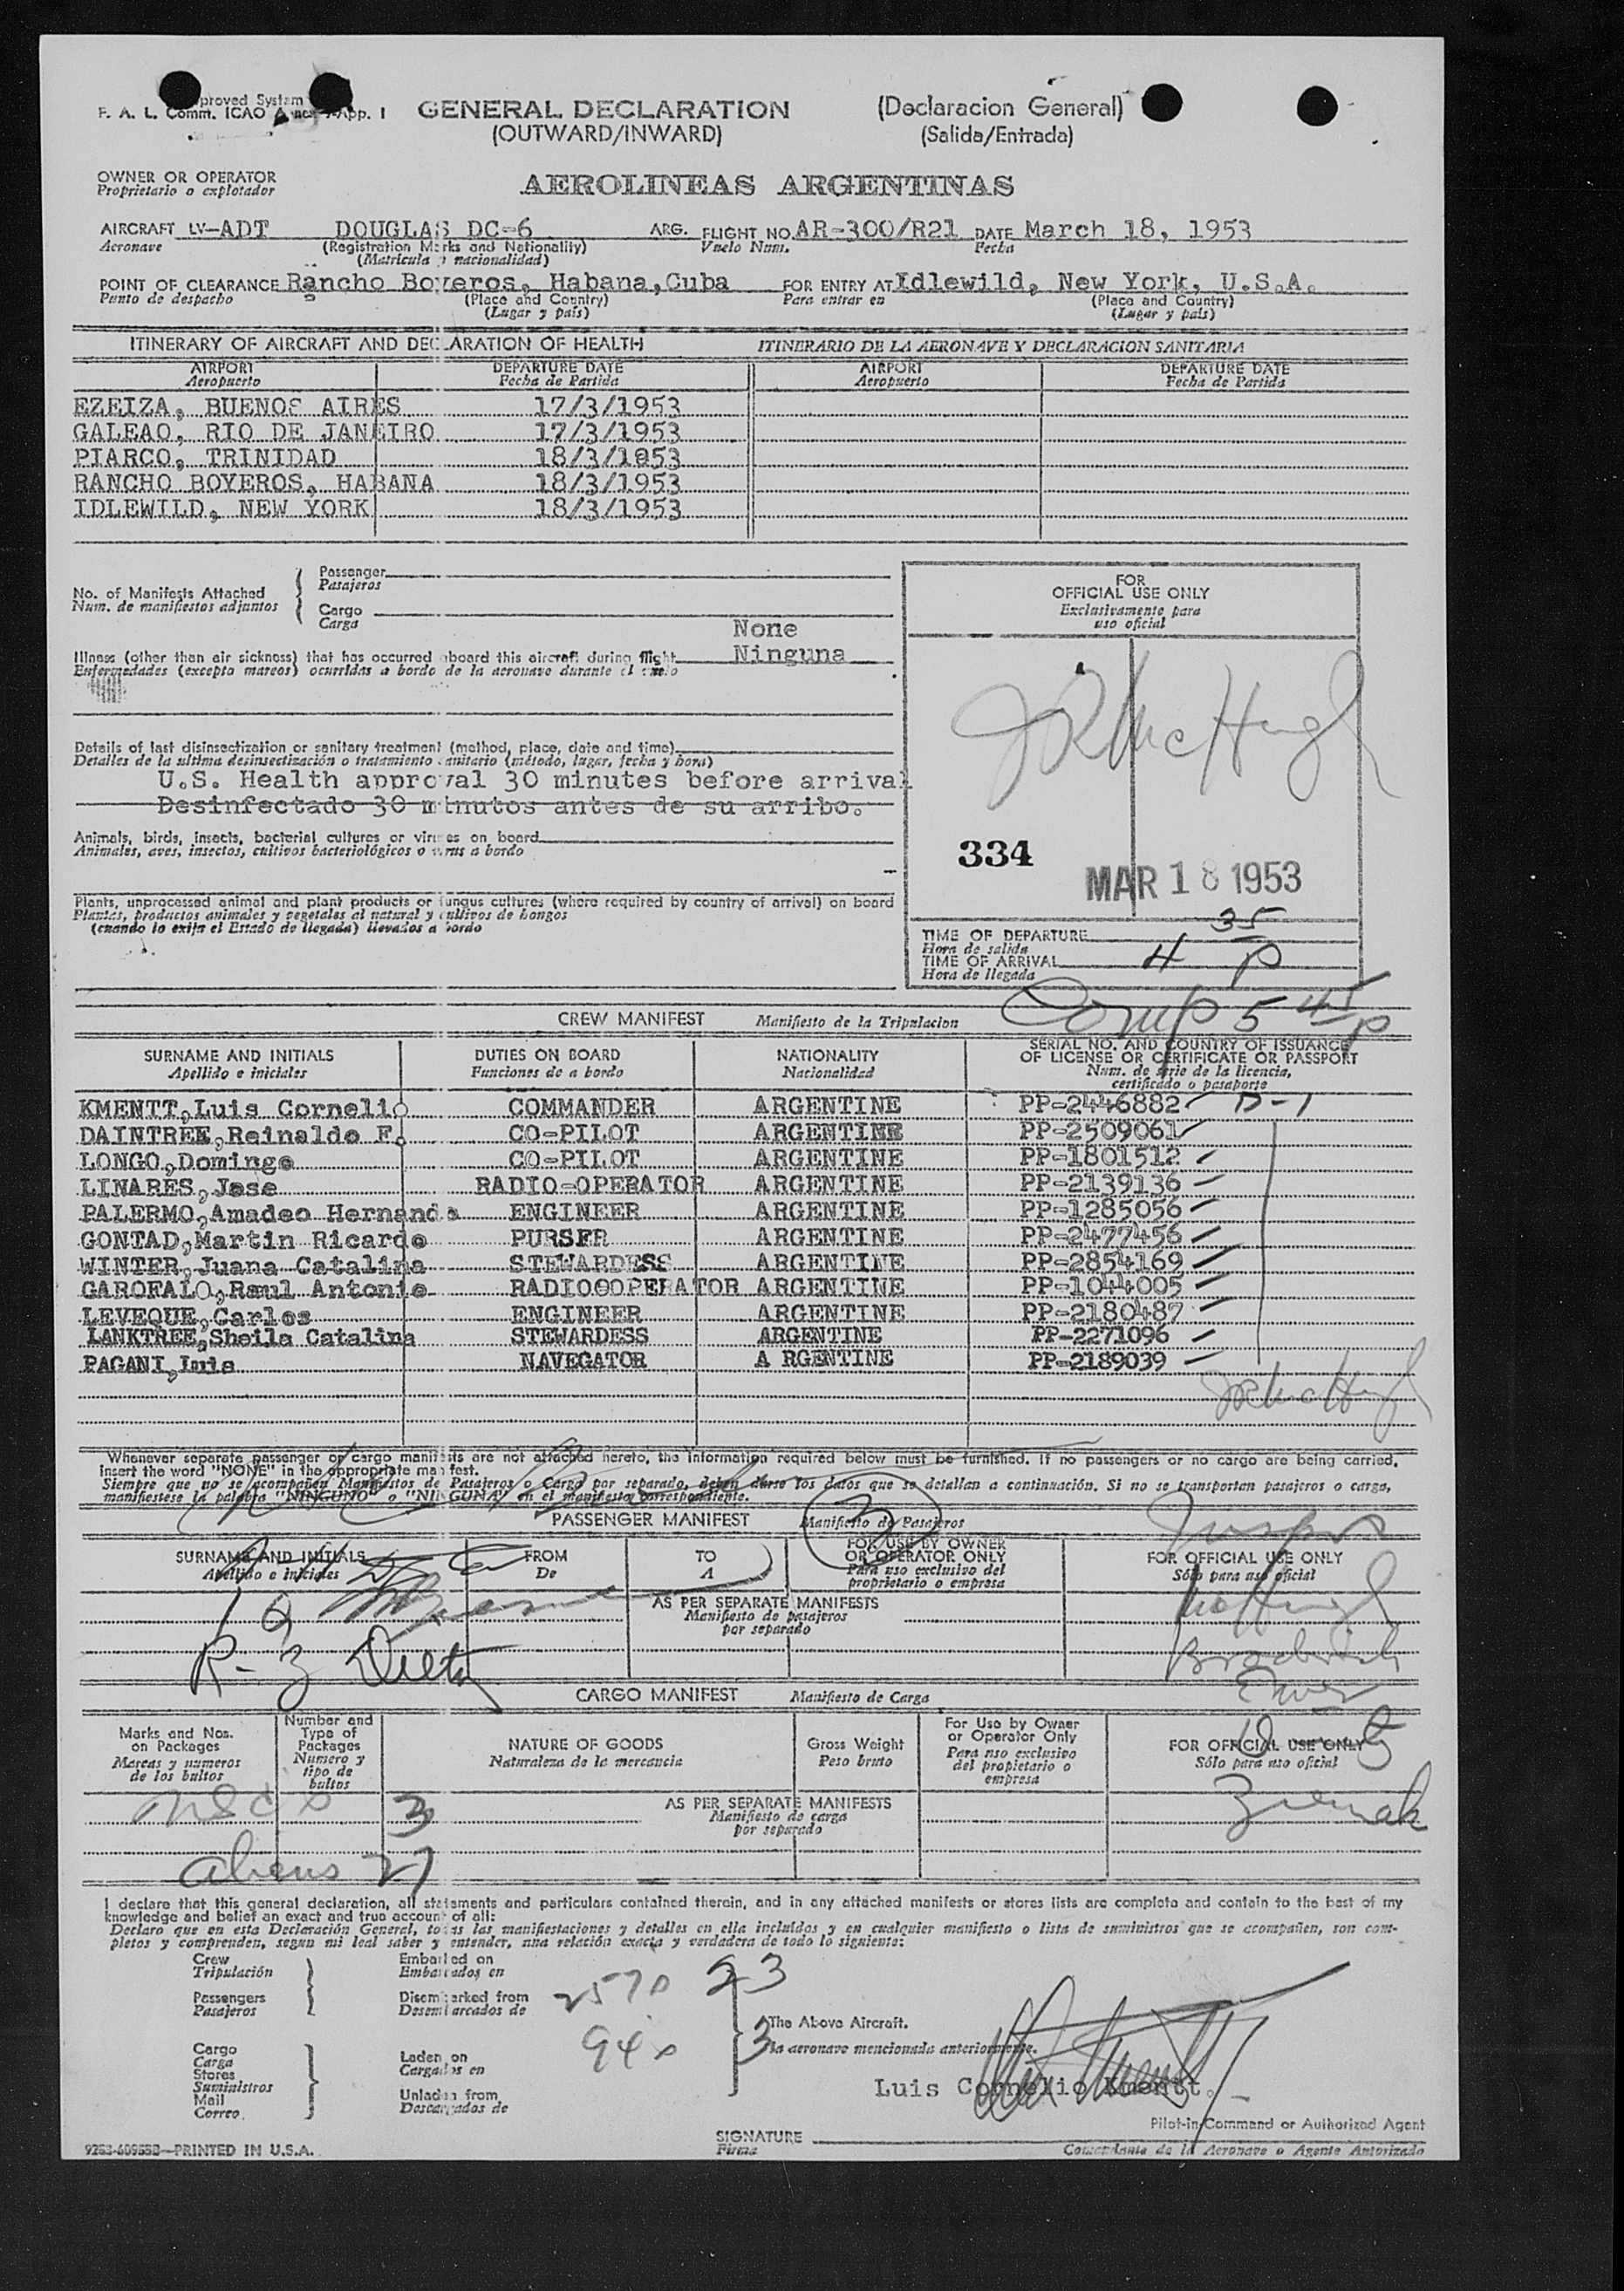 Approved System
F. A. L. Comm. ICAO App. I
GENERAL DECLARATION (Declaracion General)
(OUTWARD/INWARD) (Salida/Entrada)
OWNER OR OPERATOR AEROLINEAS ARGENTINAS
Proprietario o explotador
AIRCRAFT LV-ADT DOUGLAS DC-6 ARG. FLIGHT NO. AR-300/R21 DATE March 18, 1953
Aeronave (Registration Marks and Nationality) Vuelo Num. Fecha
(Matricula y nacionalidad)
POINT OF CLEARANCE Rancho Boyeros, Habana, Cuba FOR ENTRY AT Idlewild, New York, U.S.A.
Punto de despacho (Place and Country) Para entrar en (Place and Country)
(Lugar y pais) (Lugar y pais)
ITINERARY OF AIRCRAFT AND DECLARATION OF HEALTH ITINERARIO DE LA AERONAVE Y DECLARACION SANITARIA
AIRPORT DEPARTURE DATE AIRPORT DEPARTURE DATE
Aeropuerto Fecha de Partida Aeropuerto Fecha de Partida
EZEIZA, BUENOS AIRES 17/3/1953
GALEAO, RIO DE JANEIRO 17/3/1953
PIARCO, TRINIDAD 18/3/1953
RANCHO BOYEROS, HABANA 18/3/1953
IDLEWILD, NEW YORK 18/3/1953
No. of Manifests Attached
Num. de manifiestos adjuntos
Passenger
Pasajeros
Cargo
Carga
None
Illness (other than air sickness) that has occurred aboard this aircraft during flight Ninguna
Enfermedades (excepto mareos) ocurridas a bordo de la aeronave durante el vuelo
Details of last disinsectization or sanitary treatment (method, place, date and time)
Detalles de la ultima desinsectización o tratamiento sanitario (método, lugar, fecha y hora)
U.S. Health approval 30 minutes before arrival
Desinfectado 30 minutos antes de su arribo.
Animals, birds, insects, bacterial cultures or viruses on board
Animales, aves, insectos, cultivos bacteriológicos o virus a bordo
Plants, unprocessed animal and plant products or fungus cultures (where required by country of arrival) on board
Plantas, productos animales y vegetales al natural y cultivos de hongos
(cuando lo exija el Estado de llegada) llevados a bordo
FOR
OFFICIAL USE ONLY
Exclusivamente para
uso oficial
JR McHugh
334
MAR 18 1953
TIME OF DEPARTURE
Hora de salida
TIME OF ARRIVAL 4 35 P
Hora de llegada
Comp 5 45 P
CREW MANIFEST Manifiesto de la Tripulacion
SURNAME AND INITIALS DUTIES ON BOARD NATIONALITY SERIAL NO. AND COUNTRY OF ISSUANCE
OF LICENSE OR CERTIFICATE OR PASSPORT
Apellido e iniciales Funciones de a bordo Nacionalidad Num. de serie de la licencia,
certificado o pasaporte
KMENTT, Luis Cornelio COMMANDER ARGENTINE PP-2446882 D-1
DAINTREE, Reinaldo F. CO-PILOT ARGENTINE PP-2509061
LONGO, Domingo CO-PILOT ARGENTINE PP-1801512
LINARES, Jose RADIO-OPERATOR ARGENTINE PP-2139136
PALERMO, Amadeo Hernando ENGINEER ARGENTINE PP-1285056
GONTAD, Martin Ricardo PURSER ARGENTINE PP-2477456
WINTER, Juana Catalina STEWARDESS ARGENTINE PP-2854169
GAROFALO, Raul Antonio RADIOOOPERATOR ARGENTINE PP-1044005
LEVEQUE, Carlos ENGINEER ARGENTINE PP-2180487
LANKTREE, Sheila Catalina STEWARDESS ARGENTINE PP-2271096
PAGANI, Luis NAVEGATOR A RGENTINE PP-2189039
JR McHugh
Whenever separate passenger or cargo manifests are not attached hereto, the information required below must be furnished. If no passengers or no cargo are being carried,
insert the word "NONE" in the appropriate manifest.
Siempre que no se acompañen Manifiestos de Pasajeros o Cargo por separado, deben darse los datos que se detallan a continuación. Si no se transportan pasajeros o carga,
manifiestese la palabra "NINGUNO" o "NINGUNA" en el manifiesto correspondiente.
PASSENGER MANIFEST Manifiesto de Pasajeros
3
SURNAME AND INITIALS FROM TO FOR USE BY OWNER
OR OPERATOR ONLY FOR OFFICIAL USE ONLY
Apellido e iniciales De A Para uso exclusivo del
proprietario o empresa Sólo para uso oficial
AS PER SEPARATE MANIFESTS
Manifiesto de pasajeros
por separado
McHugh
R-3
CARGO MANIFEST Manifiesto de Carga
Marks and Nos.
on Packages
Marcas y numeros
de los bultos
Number and
Type of
Packages
Numero y
tipo de
bultos
NATURE OF GOODS
Naturaleza de la mercancia
Gross Weight
Peso bruto
For Use by Owner
or Operator Only
Para uso exclusivo
del propietario o
empresa
FOR OFFICIAL USE ONLY
Sólo para uso oficial
AS PER SEPARATE MANIFESTS
Manifiesto de carga
por separado
3
aliens 27
I declare that this general declaration, all statements and particulars contained therein, and in any attached manifests or stores lists are complete and contain to the best of my
knowledge and belief an exact and true account of all:
Declaro que en esta Declaración General, todas las manifestaciones y detalles en ella incluidos y en cualquier manifiesto o lista de suministros que se acompañen, son com-
pletos y comprenden, segun mi leal saber y entender, una relación exacta y verdadera de todo lo siguiente:
Crew
Tripulación
Passengers
Pasajeros
Embarked on
Embarcados en
Disembarked from
Desembarcados de
23
Cargo
Carga
Stores
Suministros
Mail
Correo
Laden on
Cargados en
Unladen from
Descargados de
3
The Above Aircraft.
la aeronave mencionada anteriormente.
Luis Cornelio Kmentt.
Pilot-in-Command or Authorized Agent
SIGNATURE
Firma
Comandante de la Aeronave o Agente Autorizado
9253-60955B—PRINTED IN U.S.A.